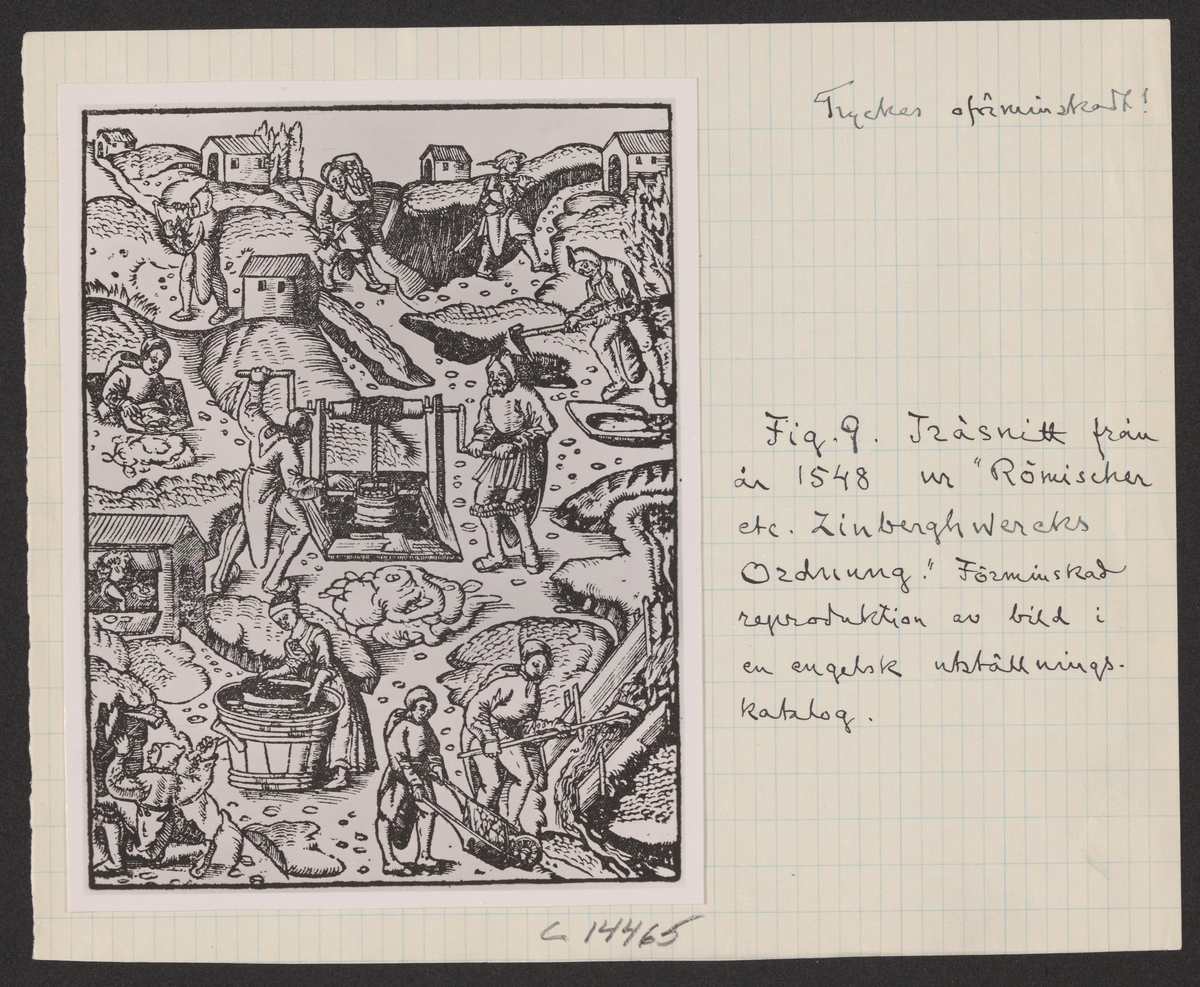 Tryckes oförminskadt!
Fig. 9. Träsnitt från
år 1548 ur "Römischer
etc. Zinberghwercks
Ordnung". Förminskad
reproduktion av bild i
en engelsk utställnings-
katalog.
C 14465